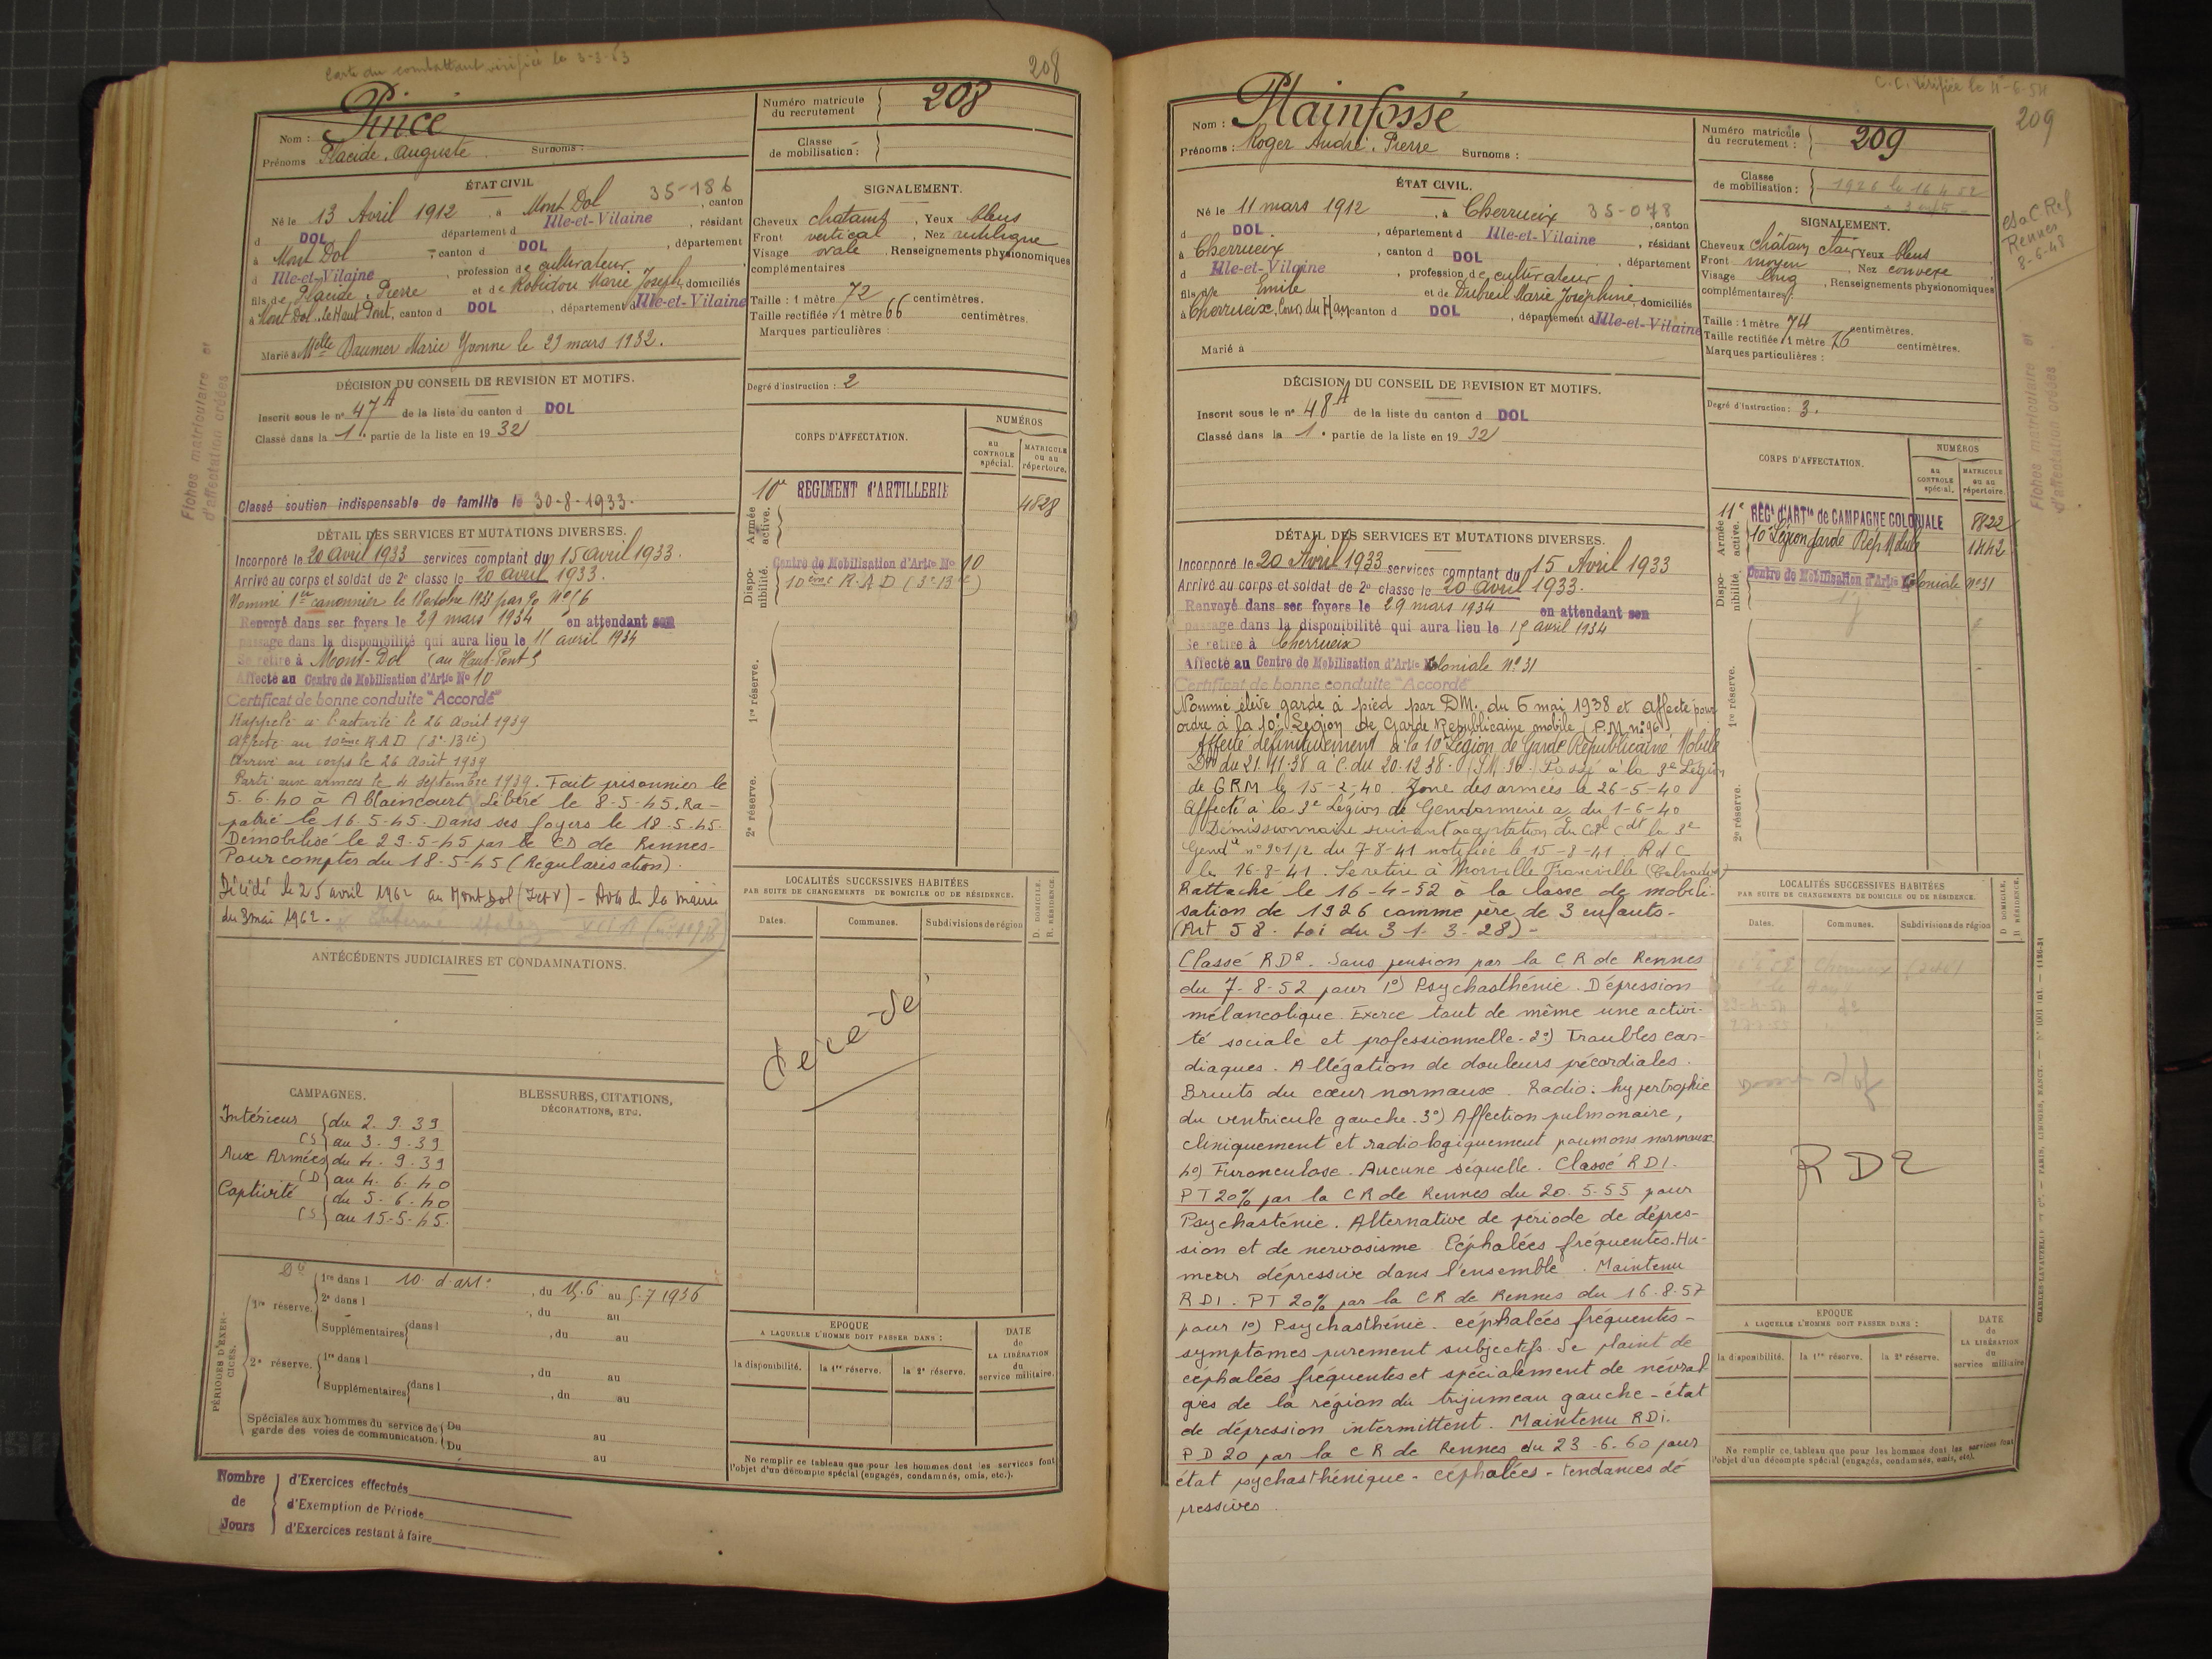 Carte du combattant vérifiée le 3-3-63
208
Nom : Pincé
Prénoms Placide, Auguste Surnoms :
Numéro matricule du recrutement } 208
Classe de mobilisation : }
ÉTAT CIVIL
35-186
Né le 13 Avril 1912, à Mont Dol, canton
d DOL département d Ille-et-Vilaine, résidant
à Mont Dol, canton d DOL, département
d Ille-et-Vilaine, profession de cultivateur
fils de Placide, Pierre et de Robidou Marie Joseph, domiciliés
à Mont Dol, le Haut Pont, canton d DOL, département d Ille-et-Vilaine
Marié à Melle Daumer Marie Yvonne le 29 mars 1932.
SIGNALEMENT.
Cheveux chatains, Yeux bleus
Front vertical, Nez rectiligne
Visage ovale. Renseignements physionomiques
complémentaires
Taille : 1 mètre 72 centimètres.
Taille rectifiée : 1 mètre 66 centimètres.
Marques particulières :
Degré d'instruction : 2
DÉCISION DU CONSEIL DE REVISION ET MOTIFS.
Inscrit sous le nº 47A de la liste du canton d DOL
Classé dans la 1e partie de la liste en 1932
Classé soutien indispensable de famille le 30-8-1933.
CORPS D'AFFECTATION.
NUMÉROS
AU CONTROLE spécial.
MATRICULE ou au répertoire.
Armée active.
10e RÉGIMENT d'ARTILLERIE 4828
Disponibilité.
Centre de Mobilisation d'Artie No 10
10ème R.A.D (3e Bie)
1re réserve.
2e réserve.
Fiches matriculaire et
d'affectation créées
DÉTAIL DES SERVICES ET MUTATIONS DIVERSES.
Incorporé le 20 avril 1933 services comptant du 15 avril 1933.
Arrivé au corps et soldat de 2e classe le 20 avril 1933.
Nommé 1er canonnier le 18 octobre 1933
Renvoyé dans ses foyers le 29 mars 1934 en attendant son
passage dans la disponibilité qui aura lieu le 15 avril 1934
Se retire à Mont-Dol (au Haut-Pont)
Affecté au Centre de Mobilisation d'Artie No 10
Certificat de bonne conduite "Accordé"
Rappelé à l'activité le 26 Août 1939
Affecté au 10ème R.A.D (3e Bie)
Arrivé au corps le 26 Août 1939
Parti aux armées le 4 septembre 1939. Fait prisonnier le
5.6.40 à Ablaincourt. Libéré le 8-5-45. Ra-
patrié le 16.5-45. Dans ses foyers le 18.5.45.
Démobilisé le 29.5-45 par le CD de Rennes-
Pour compter du 18-5-45 (Régularisation).
Décédé le 25 avril 1962 au Mont Dol (I et V) - Avis de la mairie
du 3 mai 1962.
ANTÉCÉDENTS JUDICIAIRES ET CONDAMNATIONS.
LOCALITÉS SUCCESSIVES HABITÉES
PAR SUITE DE CHANGEMENTS DE DOMICILE OU DE RÉSIDENCE.
Dates. Communes. Subdivisions de région
D. DOMICILE. R. RÉSIDENCE.
décédé
CAMPAGNES.
Intérieur { du 2.9.39
(S) } au 3.9.39
Aux Armées { du 4.9.39
(D) } au 4.6.40
Captivité { du 5.6.40
(S) } au 15-5-45.
BLESSURES, CITATIONS,
DÉCORATIONS, ETC.
PÉRIODES D'EXERCICES.
1re réserve. { 1re dans l 10. d'art. , du 15.6 au 5.7 1936
2e dans l , du au
Supplémentaires { dans l , du au
2e réserve. { 1re dans l , du au
Supplémentaires { dans l , du au
Spéciales aux hommes du service de garde des voies de communication. { Du au
Du au
EPOQUE
A LAQUELLE L'HOMME DOIT PASSER DANS :
la disponibilité. la 1re réserve. la 2e réserve.
DATE de LA LIBÉRATION du service militaire.
Ne remplir ce tableau que pour les hommes dont les services font
l'objet d'un décompte spécial (engagés, condamnés, omis, etc.).
Nombre de Jours
d'Exercices effectués
d'Exemption de Période
d'Exercices restant à faire
C.C. Vérifiée le 11-6-54
209
Nom : Plainfossé
Prénoms : Roger André, Pierre Surnoms :
Numéro matricule du recrutement : } 209
Classe de mobilisation : } 1926 le 16.4.52
csa C Ref
Rennes
8-6-48
ÉTAT CIVIL.
Né le 11 mars 1912, à Cherrueix 35-078, canton
d DOL, département d Ille-et-Vilaine, résidant
à Cherrueix, canton d DOL, département
d Ille-et-Vilaine, profession de cultivateur
fils de Emile et de Dubreil Marie Joséphine, domiciliés
à Cherrueix, canton d DOL, département d Ille-et-Vilaine
Marié à
SIGNALEMENT.
Cheveux châtain clair, Yeux bleus
Front moyen, Nez convexe
Visage long, Renseignements physionomiques
complémentaires :
Taille : 1 mètre 74 centimètres.
Taille rectifiée : 1 mètre 76 centimètres.
Marques particulières :
Degré d'instruction : 3.
DÉCISION DU CONSEIL DE REVISION ET MOTIFS.
Inscrit sous le nº 48A de la liste du canton d DOL
Classé dans la 1e partie de la liste en 1932
CORPS D'AFFECTATION.
NUMÉROS
AU CONTROLE spécial.
MATRICULE ou au répertoire.
Armée active.
11e RÉGt d'ARTie de CAMPAGNE COLONIALE 8822
10e Légion Garde Rép Mobile 1442
Disponibilité.
Centre de Mobilisation d'Artie Coloniale No 31
1re réserve.
2e réserve.
Fiches matriculaire et
d'affectation créées
DÉTAIL DES SERVICES ET MUTATIONS DIVERSES.
Incorporé le 20 Avril 1933 services comptant du 15 Avril 1933
Arrivé au corps et soldat de 2e classe le 20 avril 1933.
Renvoyé dans ses foyers le 29 mars 1934 en attendant son
passage dans la disponibilité qui aura lieu le 15 avril 1934
Se retire à Cherrueix
Affecté au Centre de Mobilisation d'Artie Coloniale No 31
Certificat de bonne conduite "Accordé"
Nommé élève garde à pied par DM. du 6 mai 1938 et affecté pour
ordre à la 10e Légion de Garde Républicaine mobile (P.M. n°96)
Affecté définitivement à la 10e Légion de Garde Républicaine Mobile
DM du 21.11.38 à C. du 20.12.38. Passé à la 3e Légion
de GRM le 15-2-40. Zone des armées le 26-5-40
Affecté à la 3e Légion de Gendarmerie à c. du 1-6-40
Démissionnaire suivant acceptation du Cel Cdt la 3e
Gendie n° 201/2 du 7-8-41 notifiée le 15-8-41. R d C
le 16-8-41. Se retire à Merville Franceville (Calvados)
Rattaché le 16-4-52 à la classe de mobili-
sation de 1926 comme père de 3 enfants-
(Art 58. Loi du 31-3-28)-
Classé RD2. Sans pension par la CR de Rennes
du 7-8-52 pour 1°) Psychasthénie. Dépression
mélancolique. Exerce tout de même une activi-
té sociale et professionnelle-2°) Troubles car-
diaques. Allégation de douleurs précordiales.
Bruits du cœur normaux. Radio: hypertrophie
du ventricule gauche.3°) Affection pulmonaire,
cliniquement et radiologiquement poumons normaux
4°) Furonculose. Aucune séquelle. Classé RD1.
PT 20% par la CR de Rennes du 20.5-55 pour
Psychasténie. Alternative de période de dépres-
sion et de nervosisme Céphalées fréquentes. Hu-
meur dépressive dans l'ensemble. Maintenu
RD1. PT 20% par la CR de Rennes du 16.8-57
pour 1°) Psychasthénie. céphalées fréquentes-
symptomes purement subjectifs. Se plaint de
céphalées fréquentes et spécialement de névral-
gies de la région du trijumeau gauche-état
de dépression intermittent. Maintenu RD1.
PD 20 par la CR de Rennes du 23-6-60 pour
état psychasthénique- céphalées- tendances dé
pressives.
LOCALITÉS SUCCESSIVES HABITÉES
PAR SUITE DE CHANGEMENTS DE DOMICILE OU DE RÉSIDENCE.
Dates. Communes. Subdivisions de région
D. DOMICILE. R. RÉSIDENCE.
RD2
EPOQUE
A LAQUELLE L'HOMME DOIT PASSER DANS :
la disponibilité. la 1re réserve. la 2e réserve.
DATE de LA LIBÉRATION du service militaire
Ne remplir ce tableau que pour les hommes dont les services font
l'objet d'un décompte spécial (engagés, condamnés, omis, etc).